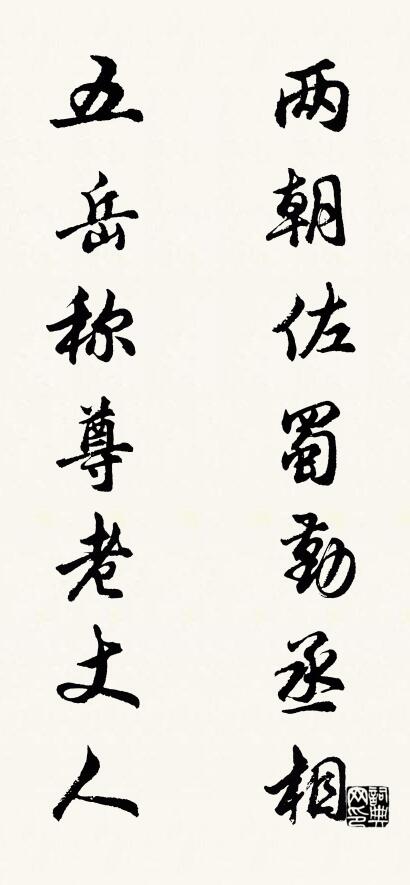 两朝佐蜀勤丞相
五岳称尊老丈人
词典网印